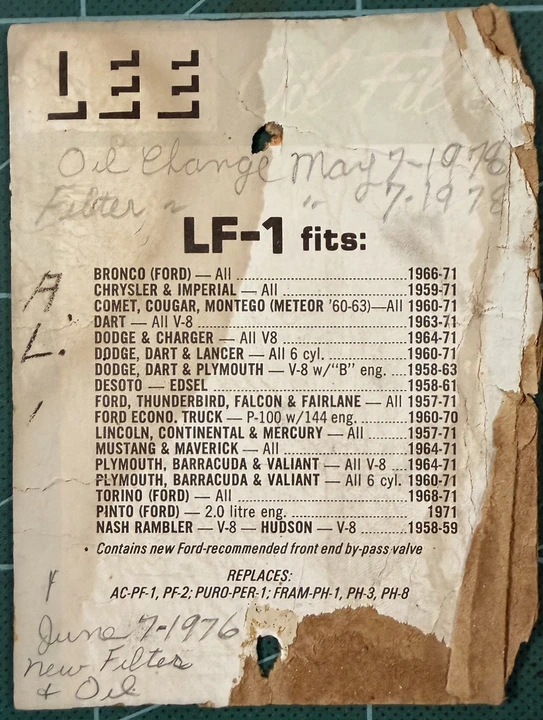 LEE Oil Fil
Oil Change May 7-1978
Filter " " 7-1978
LF-1 fits:
A.
L.
BRONCO (FORD) — All 1966-71
CHRYSLER & IMPERIAL — All 1959-71
COMET, COUGAR, MONTEGO (METEOR '60-63)—All 1960-71
DART — All V-8 1963-71
DODGE & CHARGER — All V8 1964-71
DODGE, DART & LANCER — All 6 cyl. 1960-71
DODGE, DART & PLYMOUTH — V-8 w/"B" eng. 1958-63
DESOTO — EDSEL 1958-61
FORD, THUNDERBIRD, FALCON & FAIRLANE — All 1957-71
FORD ECONO. TRUCK — P-100 w/144 eng. 1960-70
LINCOLN, CONTINENTAL & MERCURY — All 1957-71
MUSTANG & MAVERICK — All 1964-71
PLYMOUTH, BARRACUDA & VALIANT — All V-8 1964-71
PLYMOUTH, BARRACUDA & VALIANT — All 6 cyl. 1960-71
TORINO (FORD) — All 1968-71
PINTO (FORD) — 2.0 litre eng. 1971
NASH RAMBLER — V-8 — HUDSON — V-8 1958-59
• Contains new Ford-recommended front end by-pass valve
REPLACES:
AC-PF-1, PF-2; PURO-PER-1; FRAM-PH-1, PH-3, PH-8
June 7-1976
new Filter
& Oil